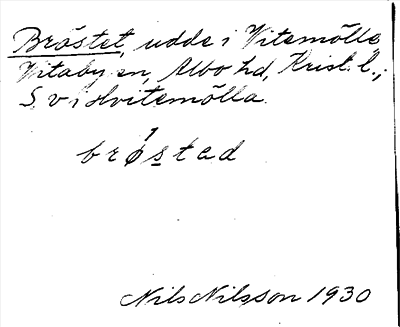 Bröstet, udde i Vitemölla
Vitaby sn, Albo hd, Krist. l.;
S v i Hvitemölla.
brøstad
Nils Nilsson 1930